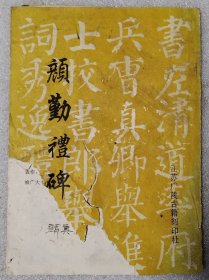 書左清道率府
兵曹真卿舉進
士校書郎舉
詞秀逸
顏勤禮碑
江苏广陵古籍刻印社